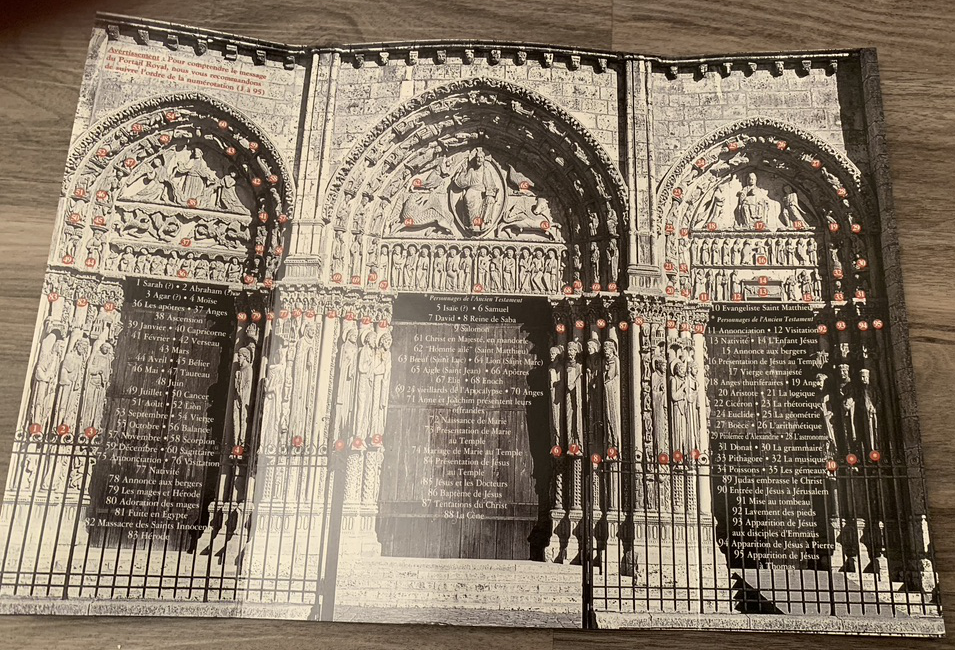 Avertissement : Pour comprendre le message
du Portail Royal, nous vous recommandons
de suivre l'ordre de la numérotation (1 à 95)
1 Sarah (?) • 2 Abraham (?)
3 Agar (?) • 4 Moïse
36 Les apôtres • 37 Anges
38 Ascension
39 Janvier • 40 Capricorne
41 Février • 42 Verseau
43 Mars
44 Avril • 45 Bélier
46 Mai • 47 Taureau
48 Juin
49 Juillet • 50 Cancer
51 Août • 52 Lion
53 Septembre • 54 Vierge
55 Octobre • 56 Balance
57 Novembre • 58 Scorpion
59 Décembre • 60 Sagittaire
75 Annonciation • 76 Visitation
77 Nativité
78 Annonce aux bergers
79 Les mages et Hérode
80 Adoration des mages
81 Fuite en Egypte
82 Massacre des Saints Innocents
83 Hérode
* Personnages de l'Ancien Testament
5 Isaïe (?) • 6 Samuel
7 David • 8 Reine de Saba
9 Salomon
61 Christ en Majesté, en mandorle
62 "Homme ailé" (Saint Matthieu)
63 Bœuf (Saint Luc) • 64 Lion (Saint Marc)
65 Aigle (Saint Jean) • 66 Apôtres
67 Elie • 68 Enoch
69 24 vieillards de l'Apocalypse • 70 Anges
71 Anne et Joachim présentent leurs
offrandes
72 Naissance de Marie
73 Présentation de Marie
au Temple
74 Mariage de Marie au Temple
84 Présentation de Jésus
au Temple
85 Jésus et les Docteurs
86 Baptême de Jésus
87 Tentations du Christ
88 La Cène
10 Evangeliste Saint Matthieu
* Personnages de l'Ancien Testament
11 Annonciation • 12 Visitation
13 Nativité • 14 L'Enfant Jésus
15 Annonce aux bergers
16 Présentation de Jésus au Temple
17 Vierge en majesté
18 Anges thuriféraires • 19 Anges
20 Aristote • 21 La logique
22 Cicéron • 23 La rhétorique
24 Euclide • 25 La géométrie
27 Boèce • 26 L'arithmétique
29 Ptolémée d'Alexandrie • 28 L'astronomie
31 Donat • 30 La grammaire
33 Pithagore • 32 La musique
34 Poissons • 35 Les gémeaux
89 Judas embrasse le Christ
90 Entrée de Jésus à Jérusalem
91 Mise au tombeau
92 Lavement des pieds
93 Apparition de Jésus
aux disciples d'Emmaüs
94 Apparition de Jésus à Pierre
95 Apparition de Jésus
à Thomas